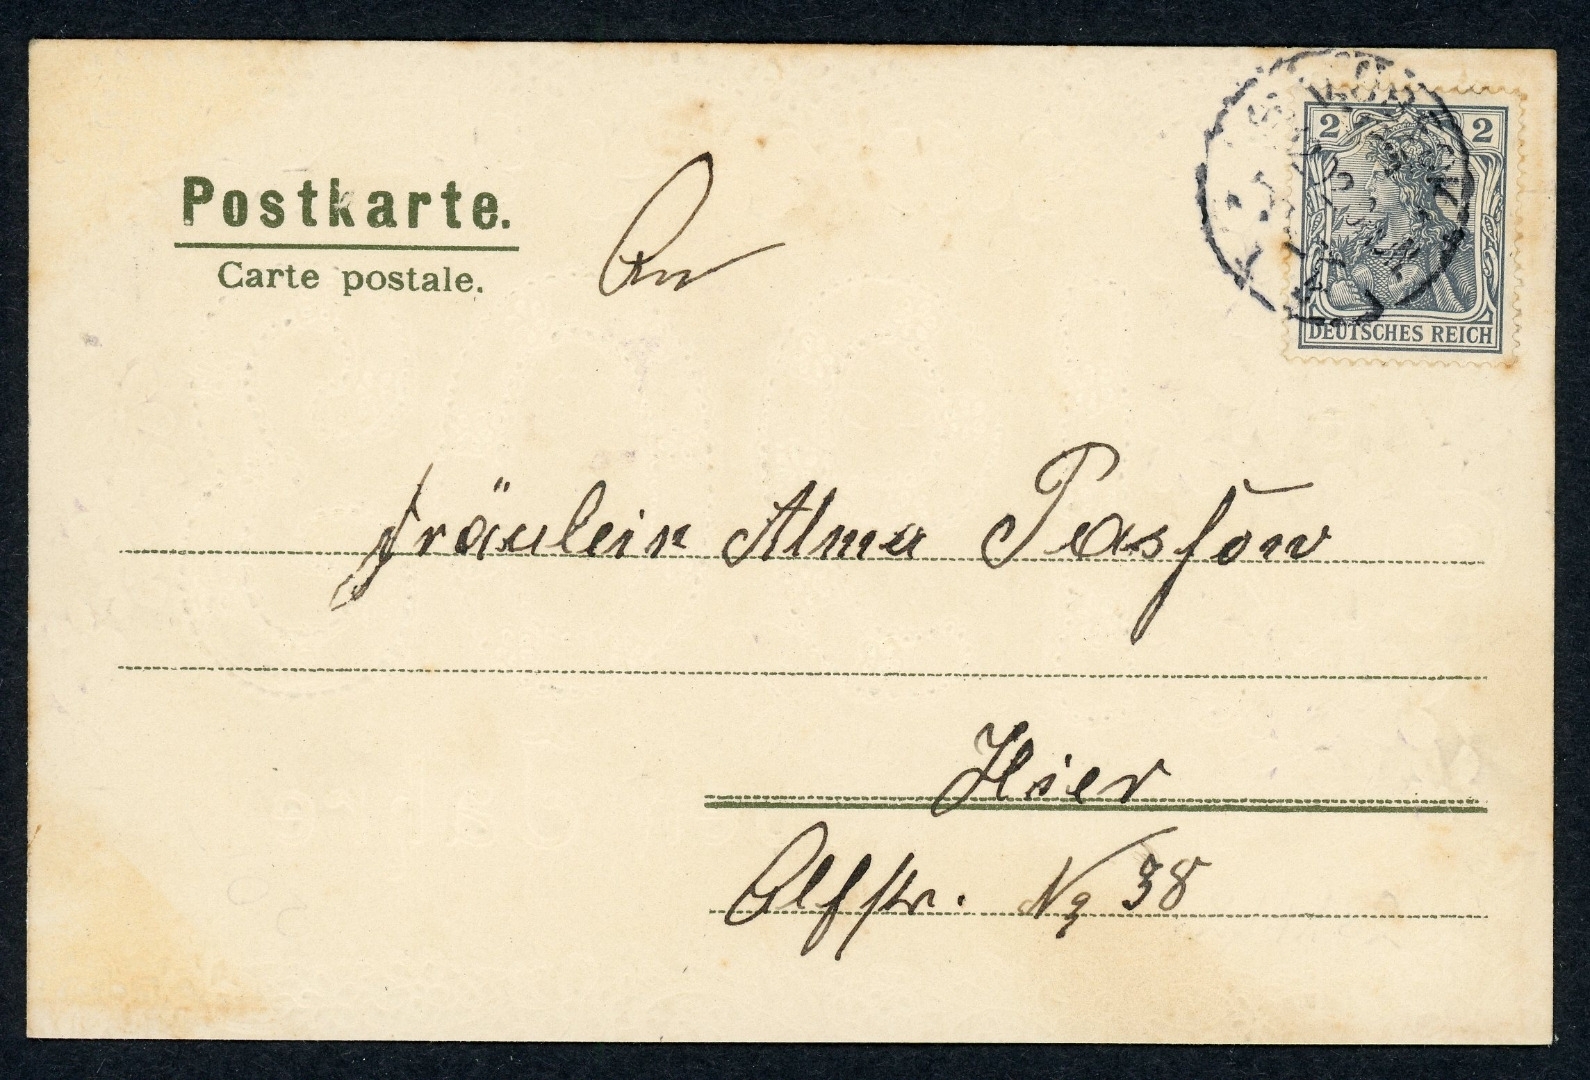 Postkarte.
Carte postale.
An
2 2
DEUTSCHES REICH
Fräulein Alma Passow
Hier
No 38